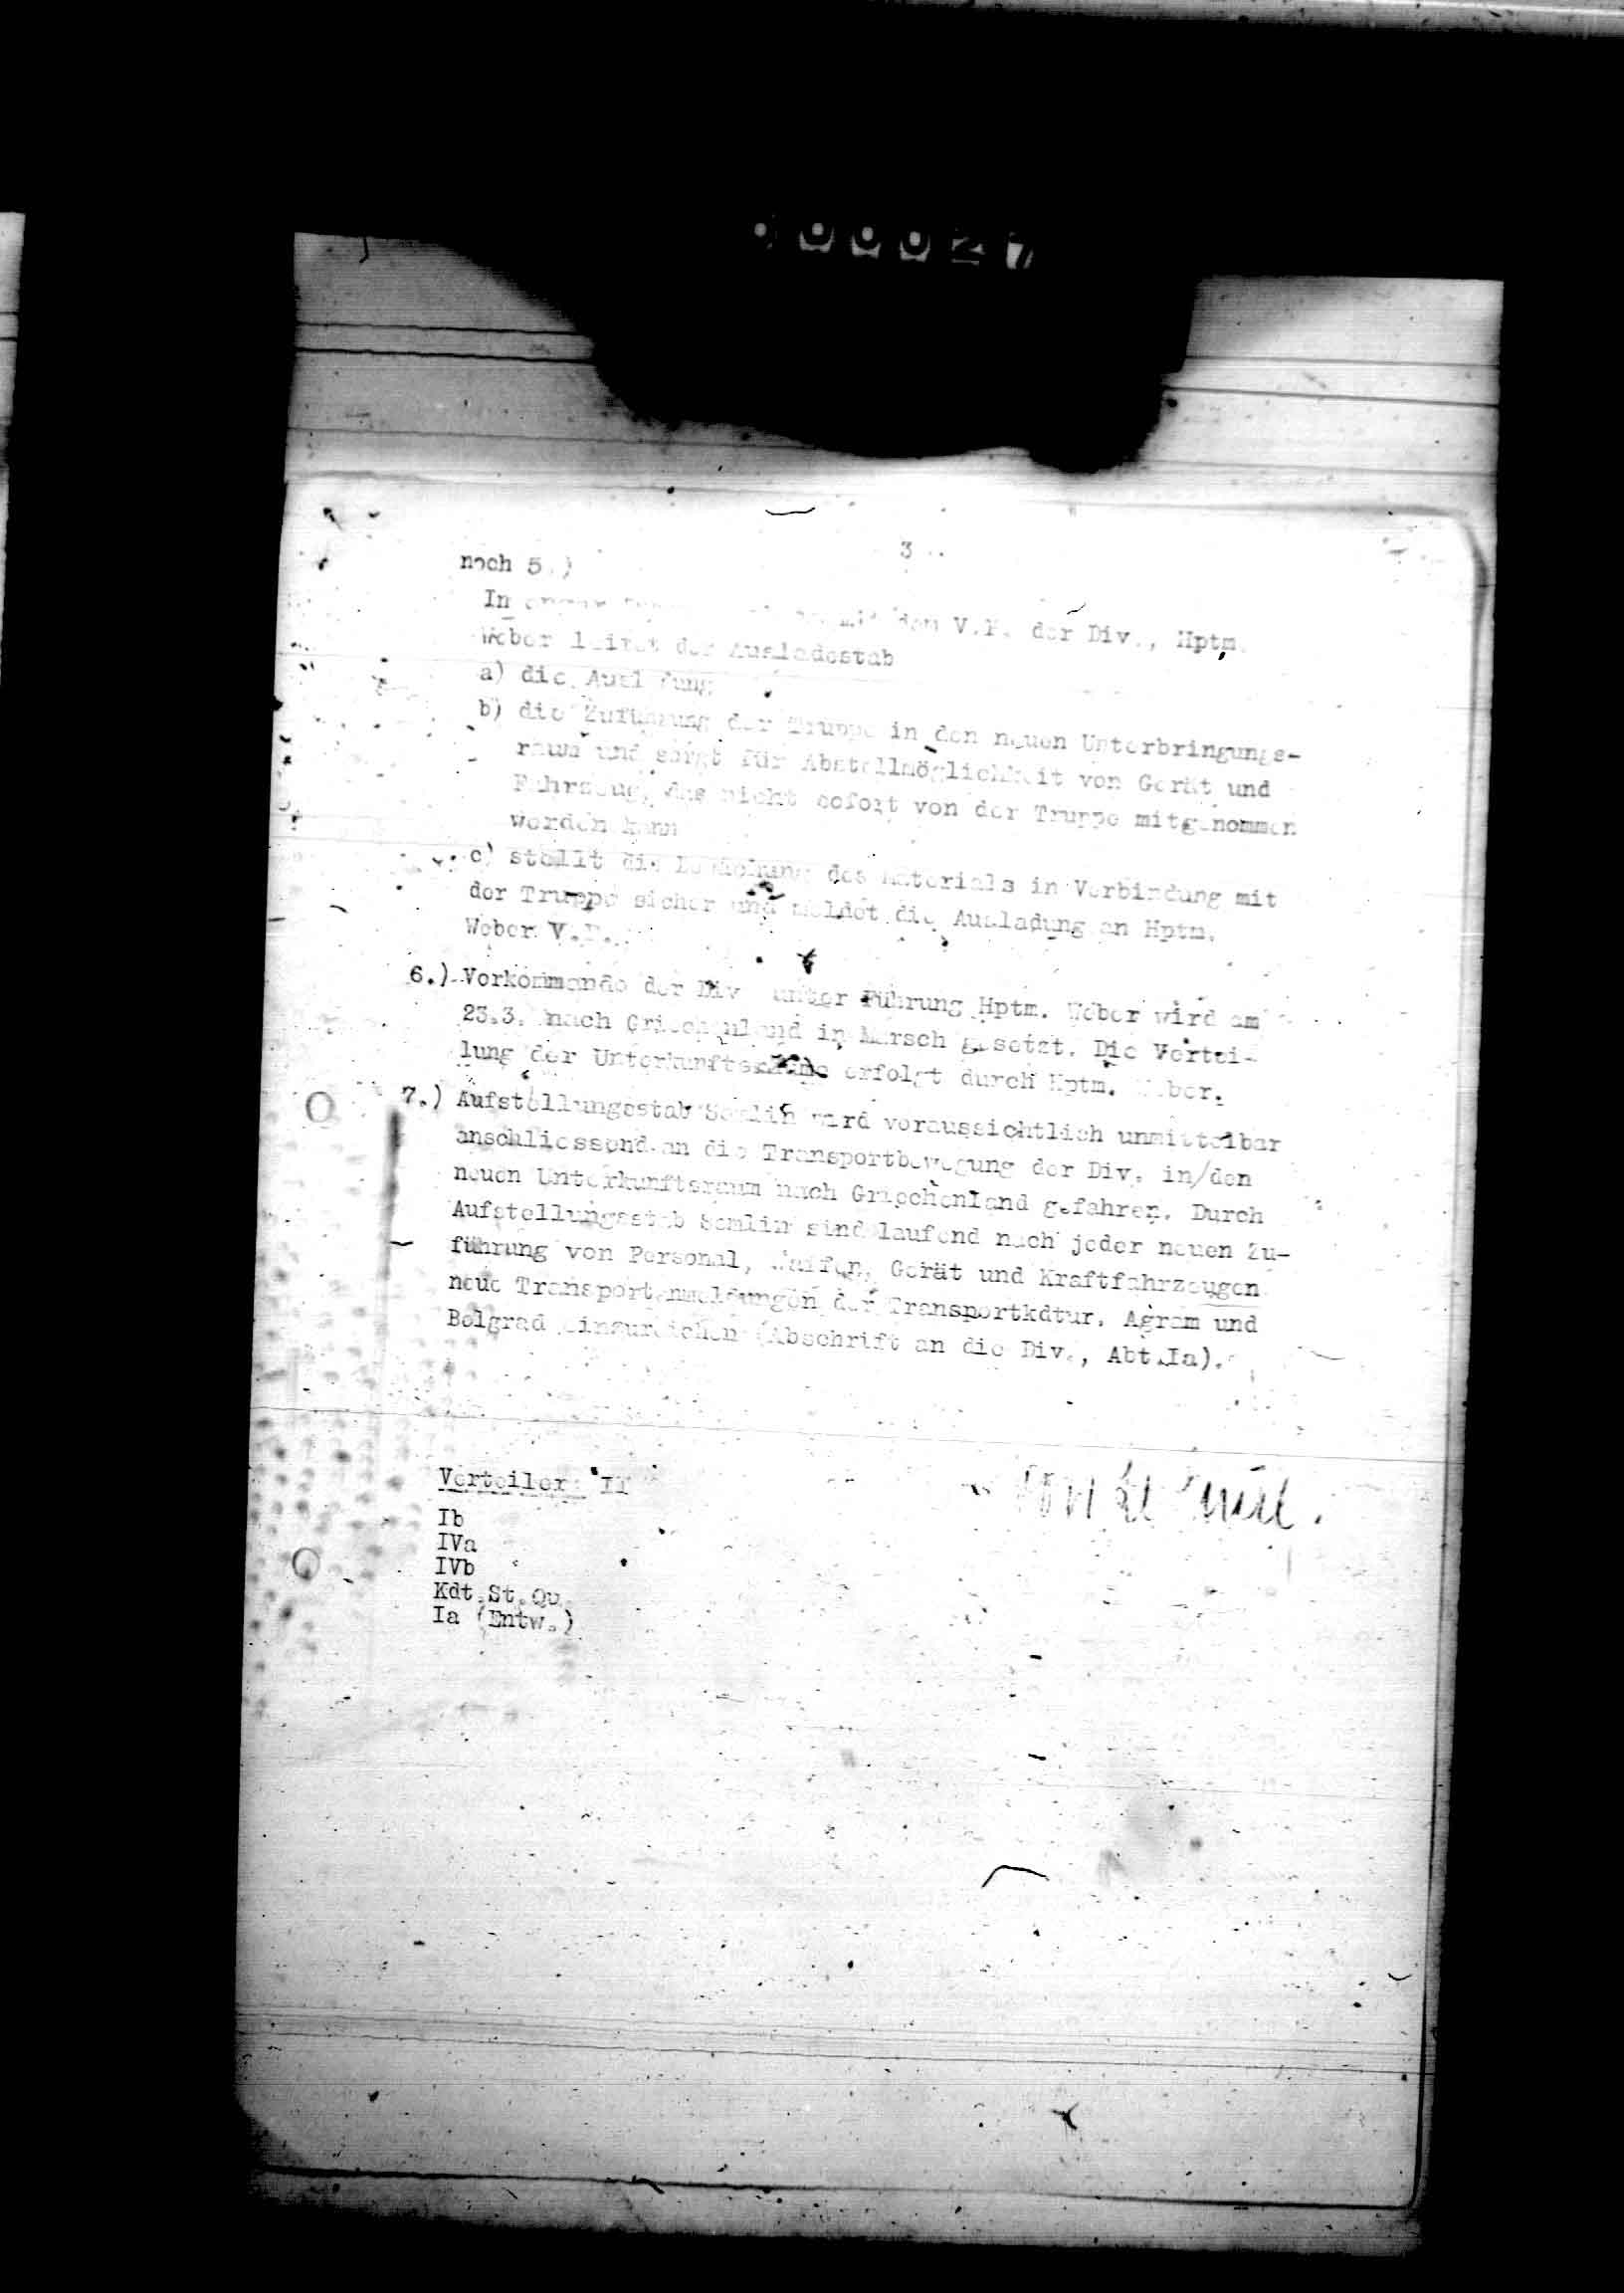 000027
3
noch 5.)
In mit dem V.P. der Div., Hptm.
Weber leitet der Ausladestab
a) die Ausladung
b) die Zuführung der Truppe in den neuen Unterbringungs-
raum und sorgt für Abstellmöglichkeit von Gerät und
Fahrzeug, das nicht sofort von der Truppe mitgenommen
werden kann
c) stellt die des Materials in Verbindung mit
der Truppe sicher und meldet die Ausladung an Hptm.
Weber V.P.
6.) Vorkommando der Div unter Führung Hptm. Weber wird am
23.3. nach Griechenland in Marsch gesetzt. Die Vertei-
lung der erfolgt durch Hptm. Weber.
7.) Aufstellungsstab Semlin wird voraussichtlich unmittelbar
anschliessend an die Transportbewegung der Div. in/den
neuen Unterkunftsraum nach Griechenland gefahren. Durch
Aufstellungsstab Semlin sind laufend nach jeder neuen Zu-
führung von Personal, Waffen, Gerät und Kraftfahrzeugen
neue Transportanmeldungen der Transportkdtur. Agram und
Belgrad einzureichen (Abschrift an die Div., Abt.Ia).
Verteiler: II
Ib
IVa
IVb
Kdt.St.Qu.
Ia (Entw.)